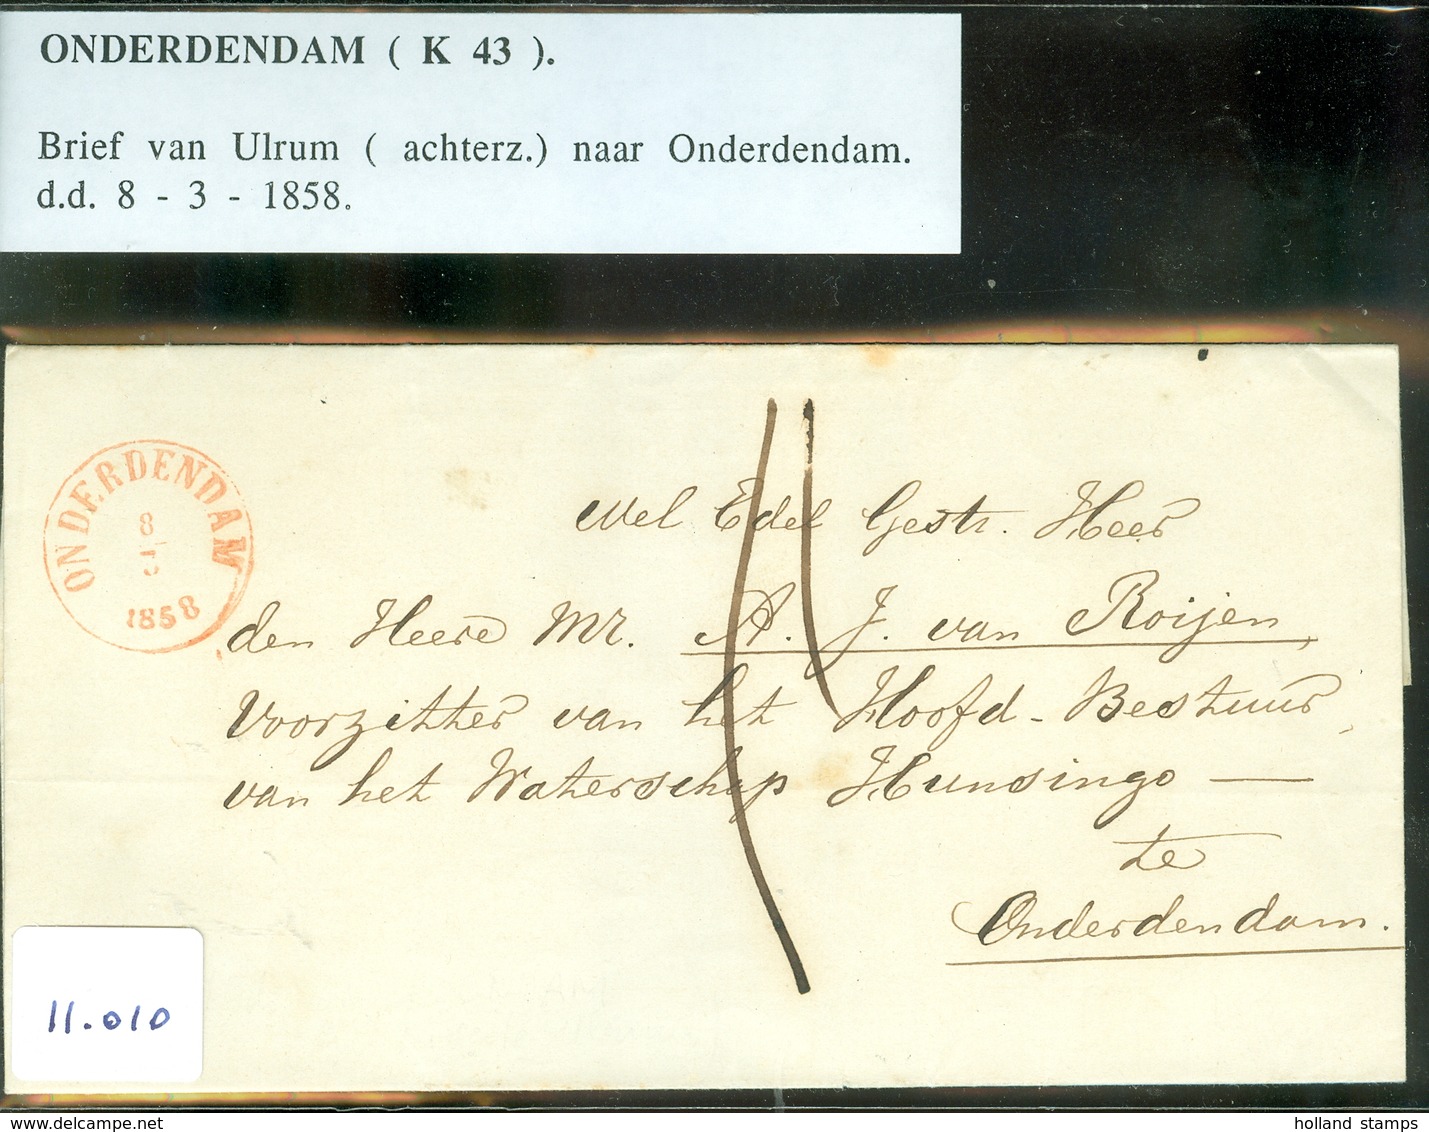 ONDERDENDAM ( K 43 ).
Brief van Ulrum ( achterz.) naar Onderdendam.
d.d. 8 - 3 - 1858.
ONDERDENDAM
8
3
1858
Wel Edel Gestr. Heer
den Heere Mr. A. J. van Roijen,
Voorzitter van het Hoofd-Bestuur,
van het Waterschap Hunsingo —
te
Onderdendam.
11.010
delcampe.net
holland stamps